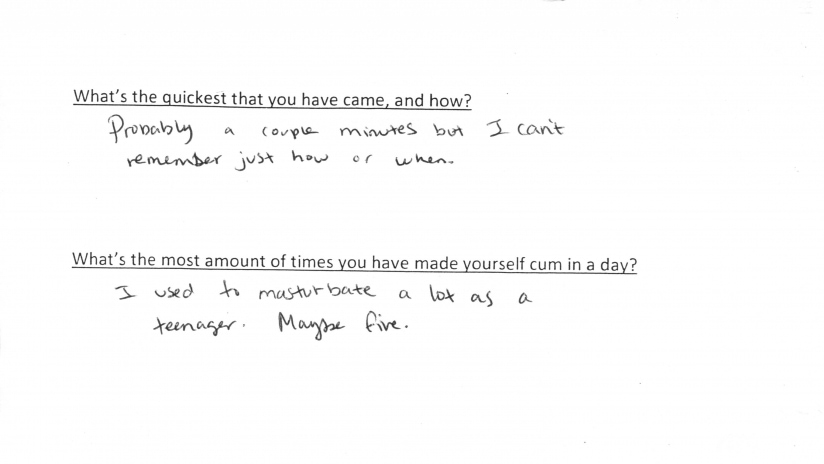 What's the quickest that you have came, and how?
Probably a couple minutes but I can't
remember just how or when.
What's the most amount of times you have made yourself cum in a day?
I used to masturbate a lot as a
teenager. Maybe five.